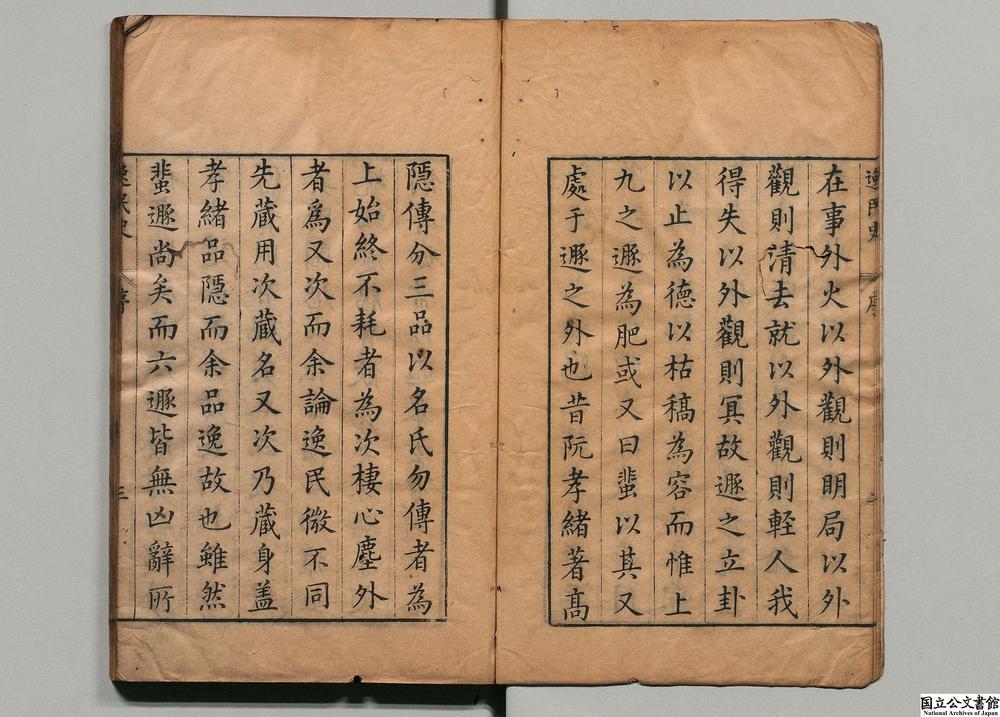 逸民史 序
在事外火以外觀則明局以外
觀則清去就以外觀則輕人我
得失以外觀則冥故遯之立卦
以止為德以枯稿為容而惟上
九之遯為肥或又曰蜚以其又
處于遯之外也昔阮孝緒著高
隱傳分三品以名氏勿傳者為
上始終不耗者為次棲心塵外
者爲又次而余論逸民微不同
先藏用次藏名又次乃藏身盖
孝緒品隱而余品逸故也雖然
蜚遯尚矣而六遯皆無凶辭所
逸民史 序 三
国立公文書館
National Archives of Japan